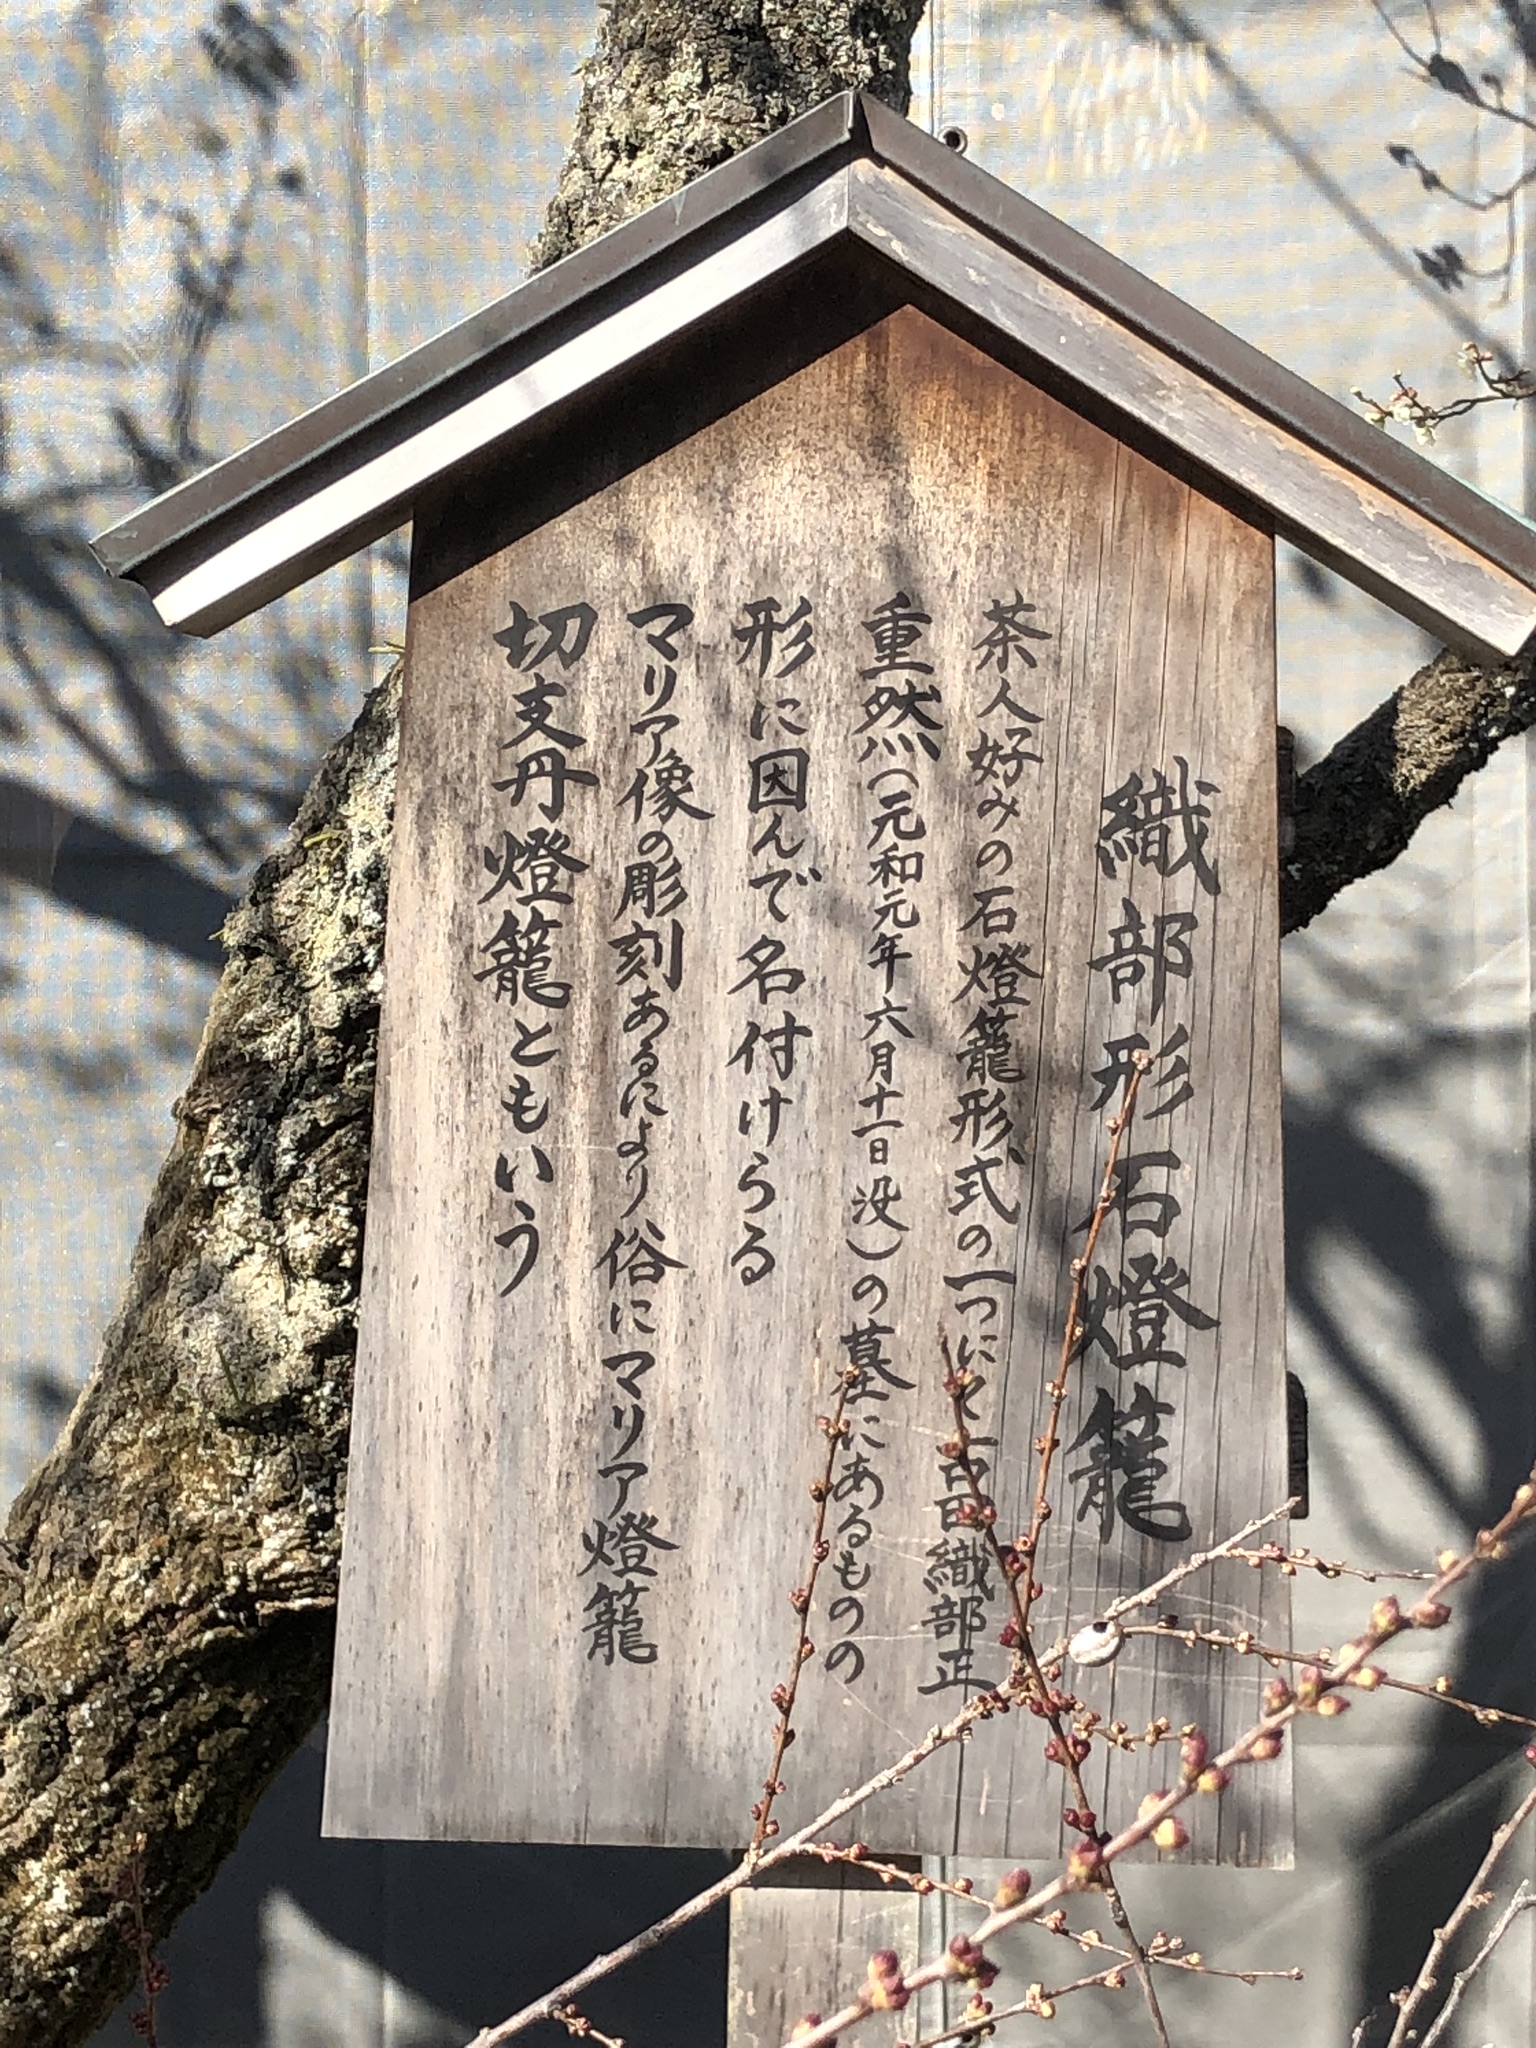 織部形石燈籠
茶人好みの石燈籠形式の一つにて古田織部正
重然(元和元年六月十一日没)の墓にあるものの
形に因んで名付けらる
マリア像の彫刻あるにより俗にマリア燈籠
切支丹燈籠ともいう